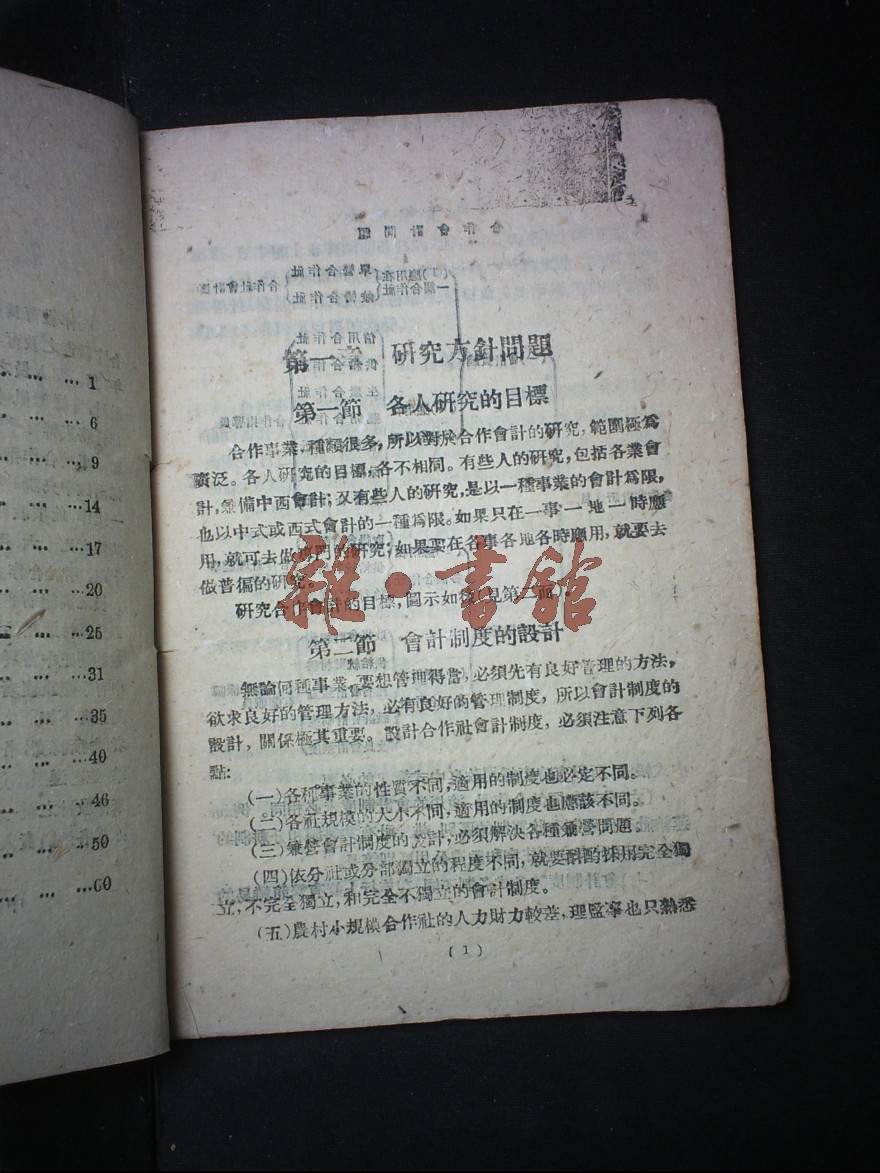 第一章 研究方針問題
第一節 各人研究的目標
合作事業,種類很多,所以對於合作會計的研究,範圍極爲
廣泛。各人研究的目標,各不相同。有些人的研究,包括各業會
計,兼備中西會計;又有些人的研究,是以一種事業的會計爲限,
也以中式或西式會計的一種爲限。如果只在一事一地一時應
用,就可去做專門的研究;如果要在各事各地各時應用,就要去
做普徧的研究。
研究合作會計的目標,圖示如後(見第二面)
雜·書館
第二節 會計制度的設計
無論何種事業,要想管理得當,必須先有良好管理的方法,
欲求良好的管理方法,必有良好的管理制度,所以會計制度的
設計,關係極其重要。設計合作社會計制度,必須注意下列各
點:
(一)各種事業的性質不同,適用的制度也必定不同。
(二)各社規模的大小不同,適用的制度也應該不同。
(三)兼營會計制度的設計,必須解決各種兼營問題。
(四)依分社或分部獨立的程度不同,就要斟酌採用完全獨
立,不完全獨立,和完全不獨立的會計制度。
(五)農村小規模合作社的人力財力較差,理監事也只熟悉
(1)
... ... 1
... ... 6
... ... 9
... ... 14
... ... 17
... ... 20
... ... 25
... ... 31
... ... 35
... ... 40
... ... 46
... ... 50
... ... 60